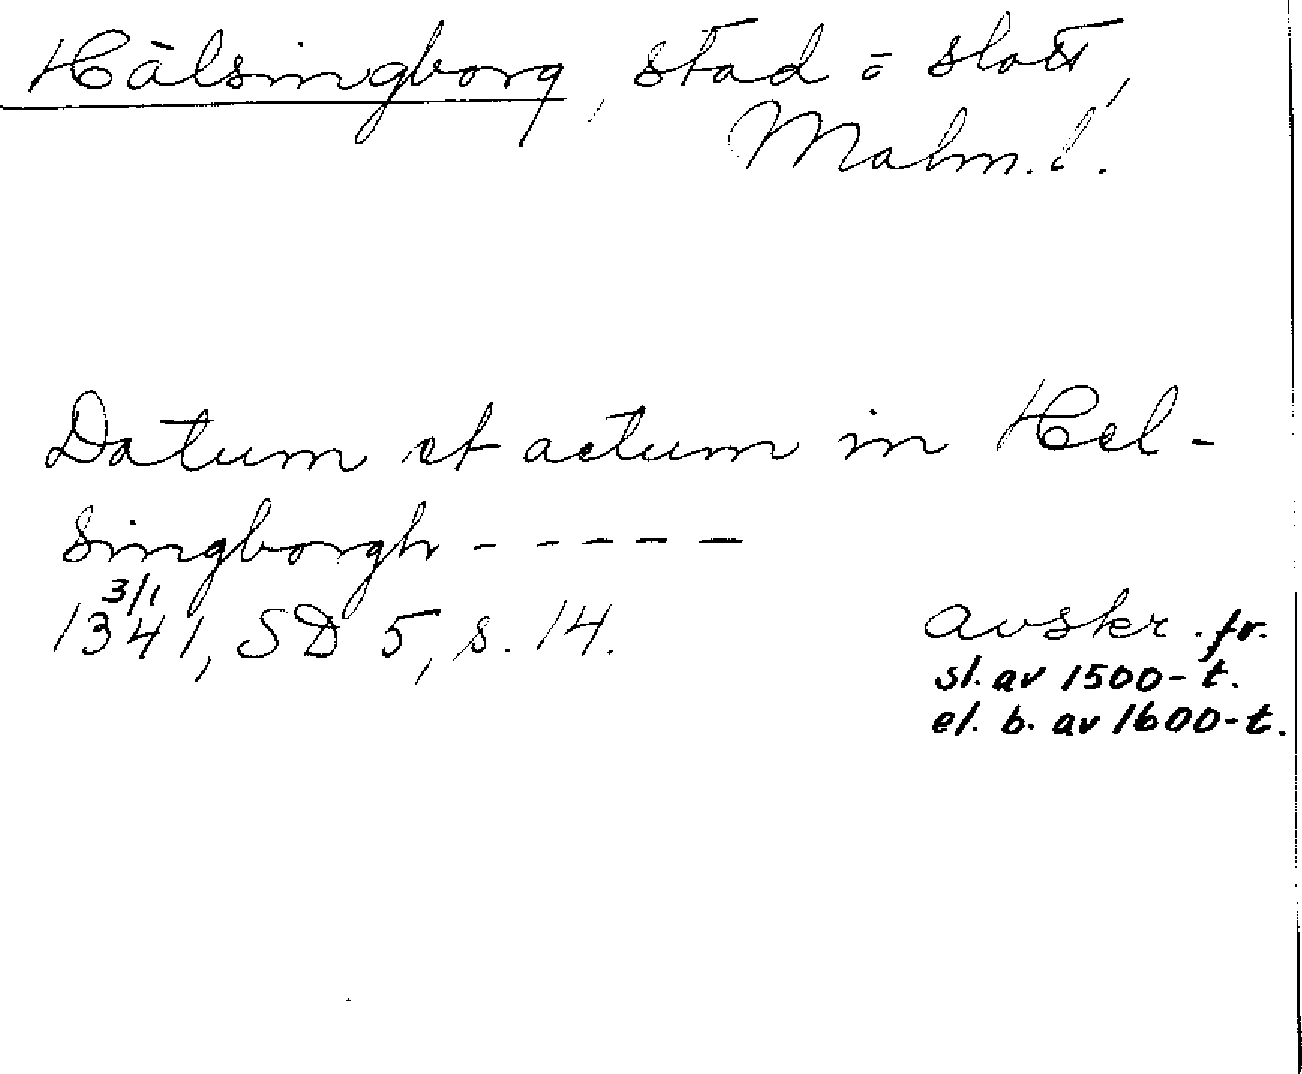 Hälsingborg, stad o slott,
Malm. l.
Datum et actum in Hel-
singborgh - - - - -
3/1
1341, SD 5, s. 14.
avskr. fr.
sl. av 1500-t.
el. b. av 1600-t.